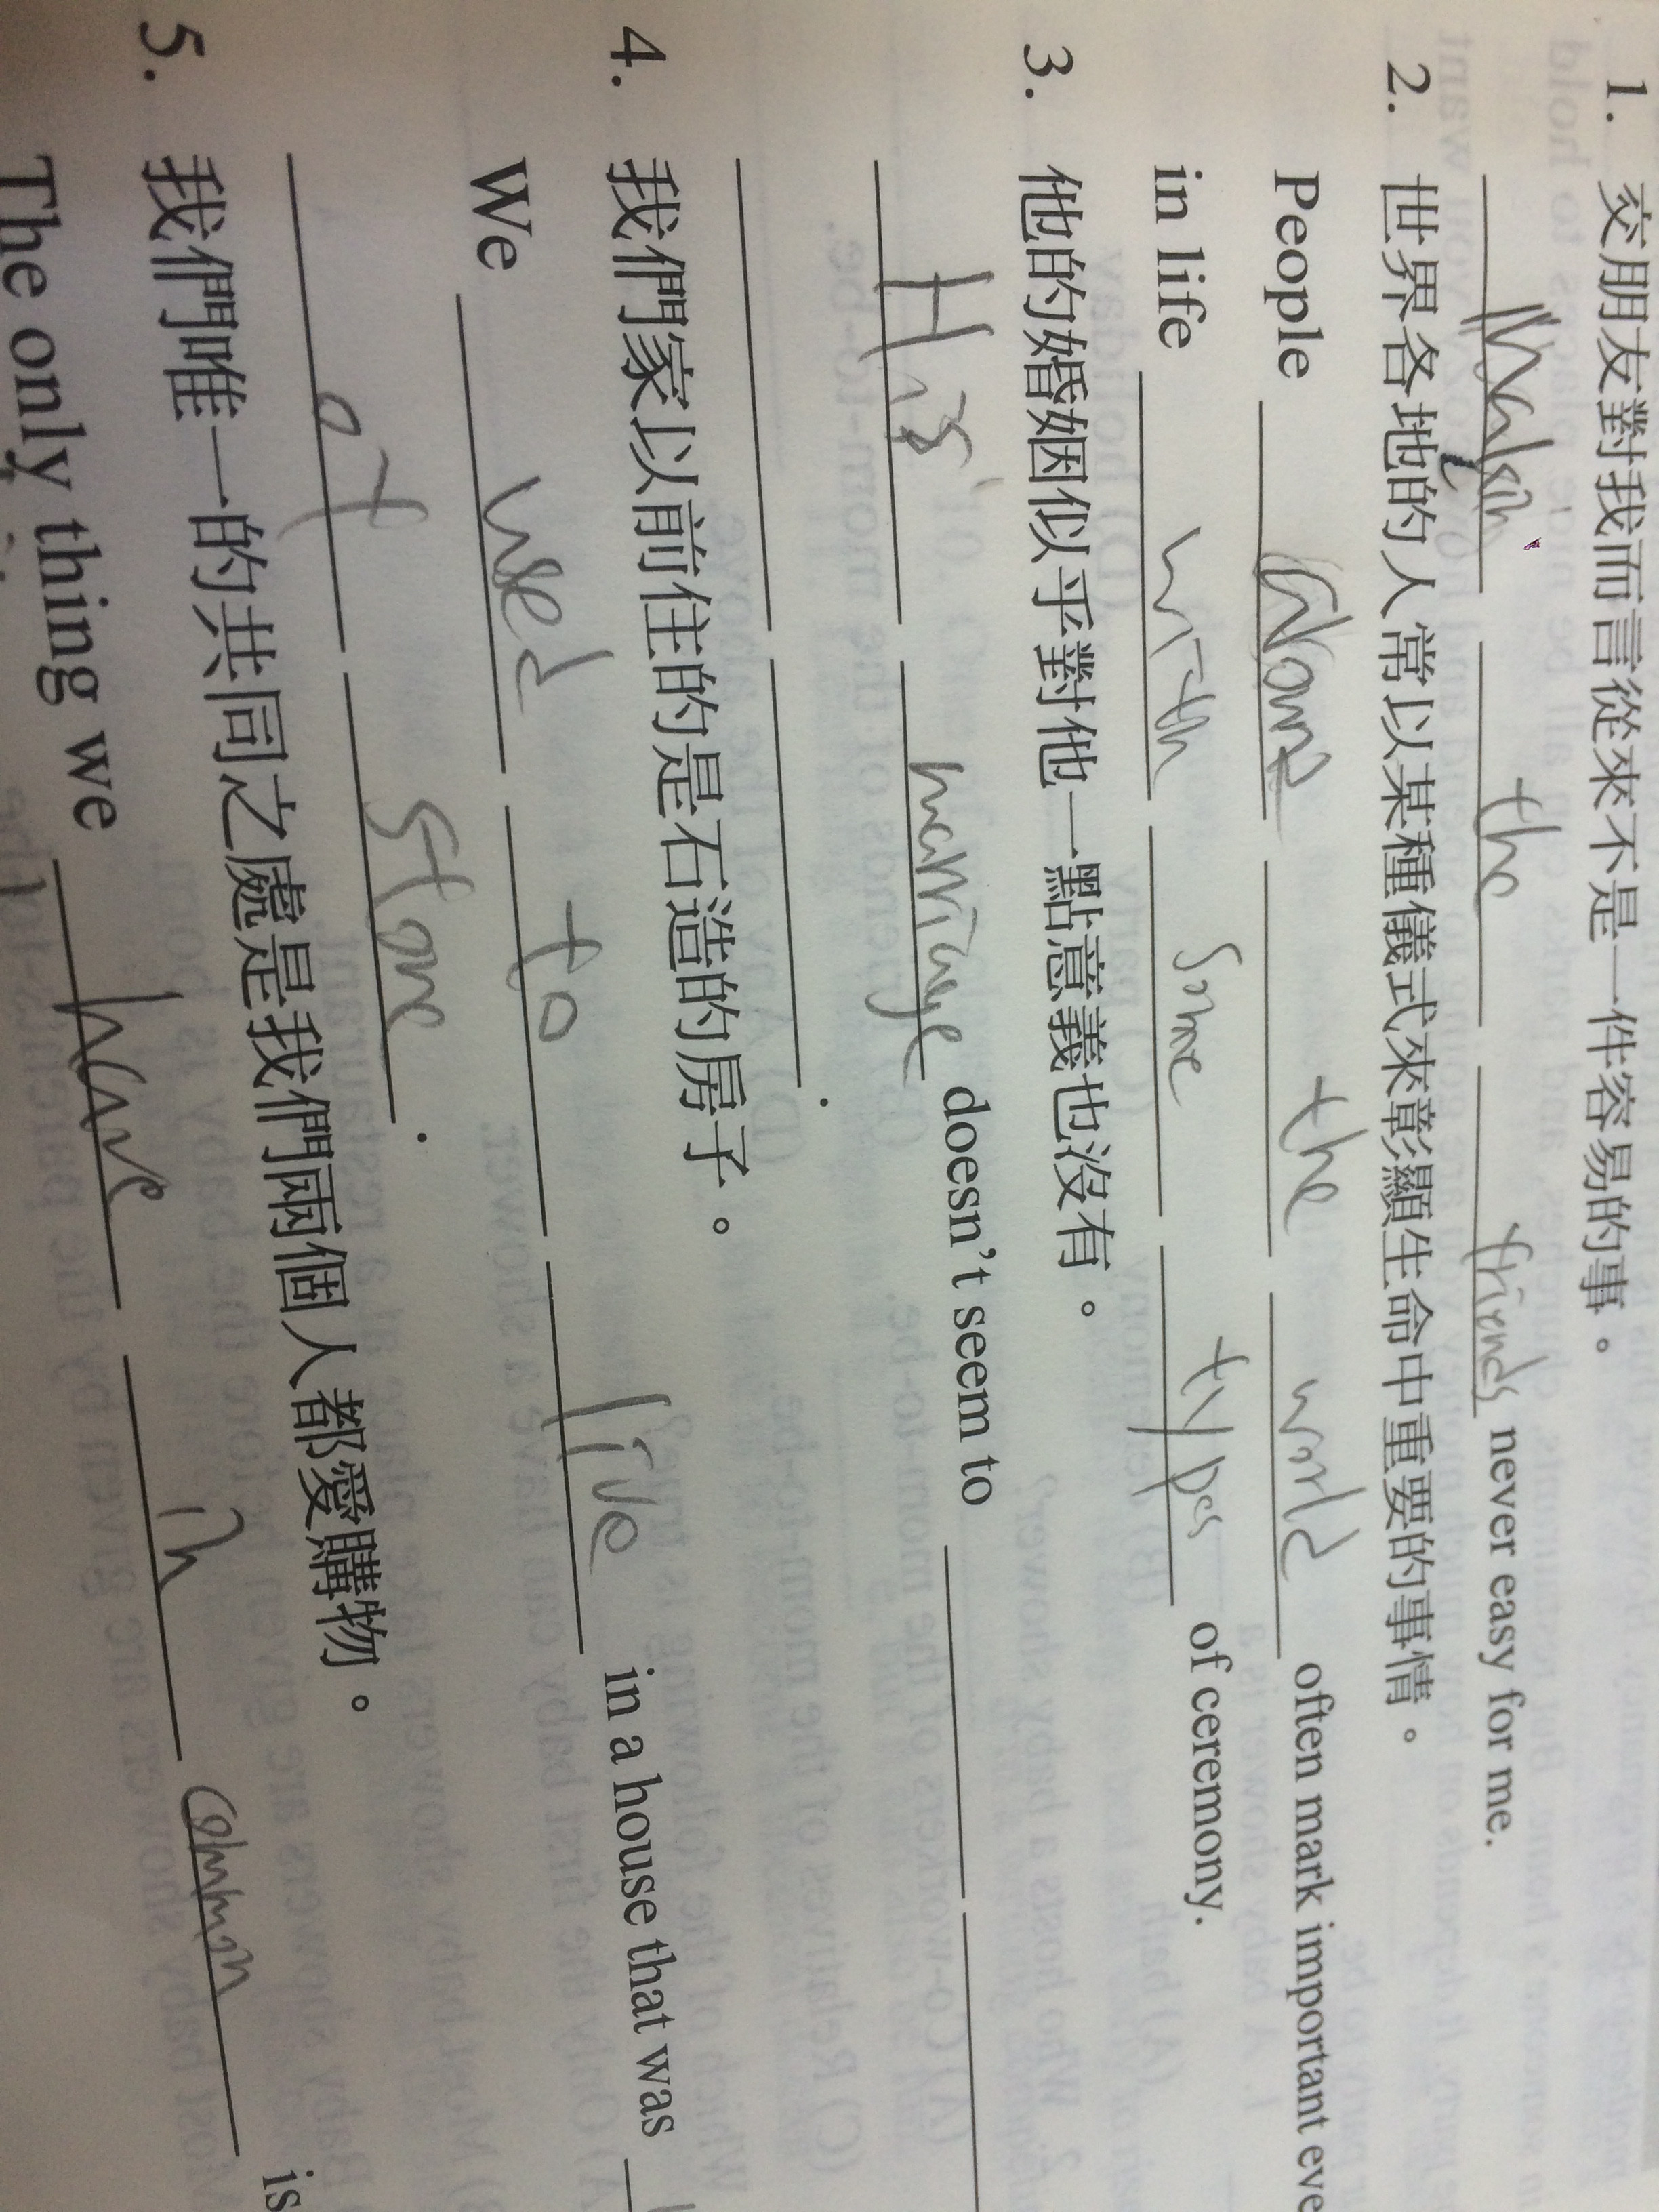 1. 交朋友對我而言從來不是一件容易的事。
the friends never easy for me.
2. 世界各地的人常以某種儀式來彰顯生命中重要的事情。
People the world often mark important eve
in life with some types of ceremony.
3. 他的婚姻似乎對他一點意義也沒有。
His marriage doesn't seem to
.
4. 我們家以前住的是石造的房子。
We used to live in a house that was
of stone.
5. 我們唯一的共同之處是我們兩個人都愛購物。
The only thing we have in common is